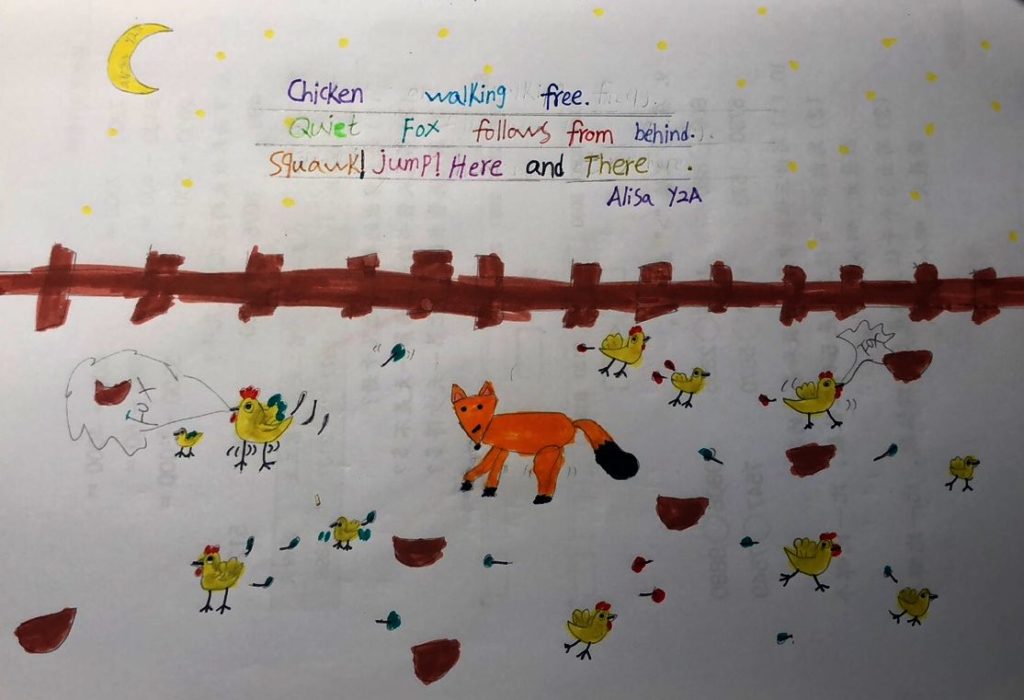 Chicken walking free.
Quiet Fox follows from behind.
Squawk! jump! Here and There .
Alisa Y2A
FOX
FOX